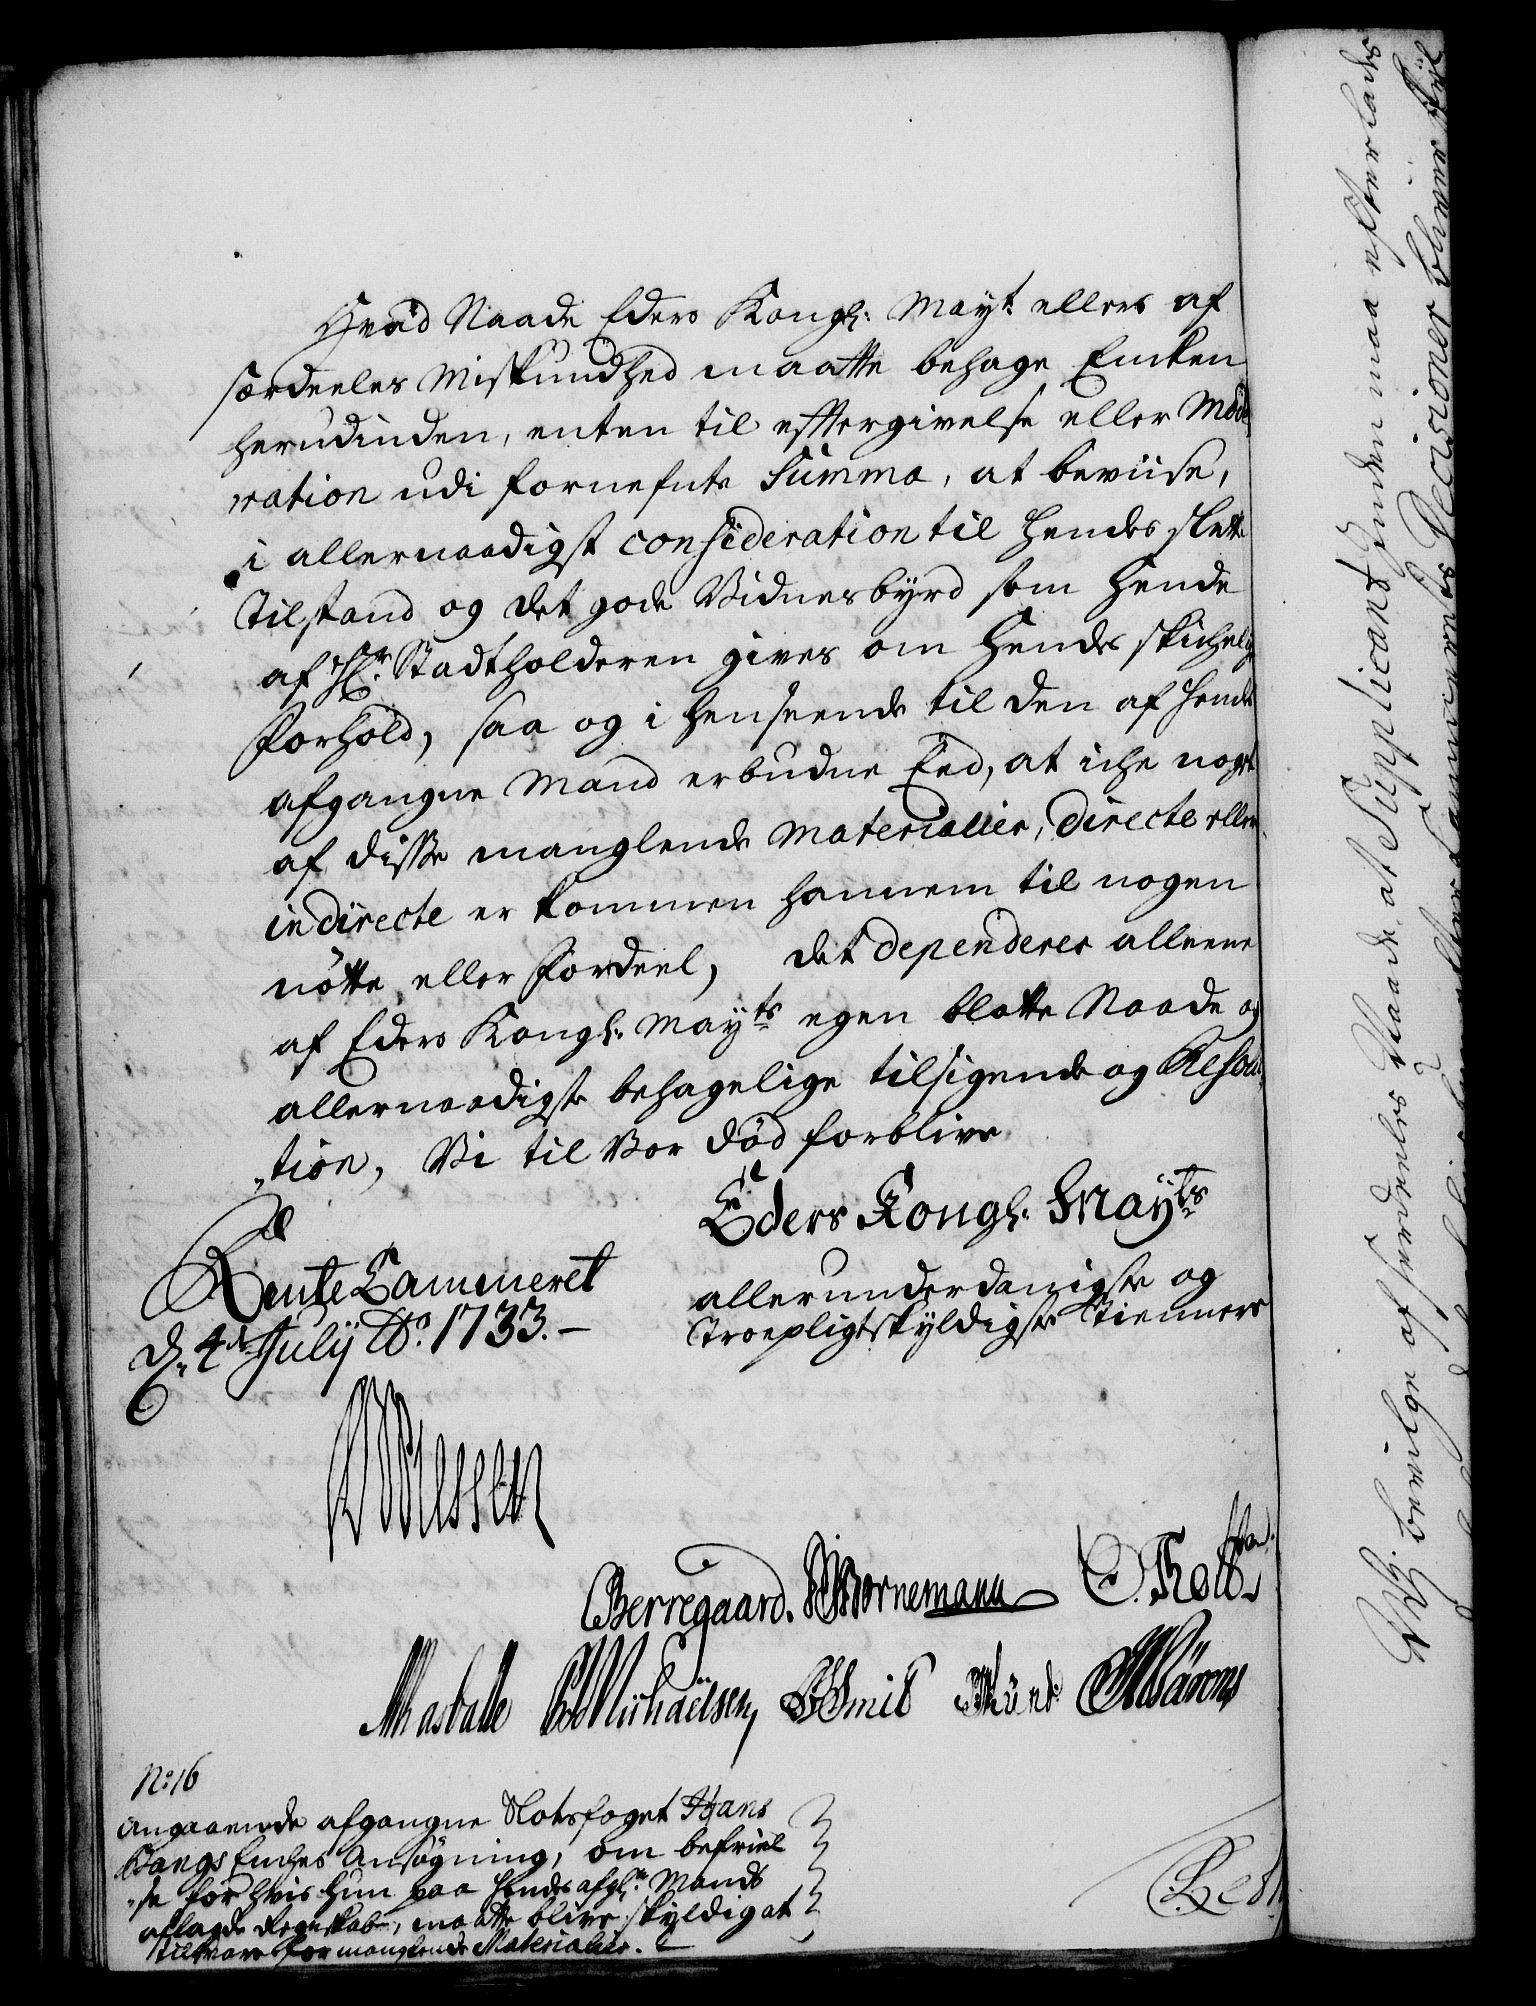 Hvad Naade Eders Kongl: Mayt. ellers af
særdeeles Miskundhed maatte behage Encken
herudinden, enten til efftergivelse eller Mode„
ration udi fornefnte Summa, at beviise,
i allernaadigst consideration til hendes slette
Tilstand og det gode Vidnesbÿrd som hende
af Hr. Stadtholderen gives om hendes skichelige
forhold, saa og i henseende til den af hendes
afgangne Mand erbudne Eed, at iche noget
af disse manglende Materialier, directe eller
indirecte er kommen hannem til nogen
nötte eller fordeel, det dependerer alleene
af Eders Kongl: Mayts egen blotte Naade og
allernaadigste behagelige tilsigende og Resolu„
„tion, Vi til vor död forblive
Eders Kongl: Mayts
allerunderdanigste og
Troepligtskyldigste Tiennere
Rente Cammeret
d. 4de Julij Ao. 1733.
Berregaard. Bornemann
Michaëlsen,
No: 16
angaaende afgangne Slotsfoget Hans
Bangs Enches Ansögning, om befriel
„se for hvis hun paa hendes afgl: Mands
aflagde Regnskab, maatte blive skyldig at
tilsvare for manglende Materialier.
Vj bevilge af særdeeles Naade, at Supplicantinden maa efterlades